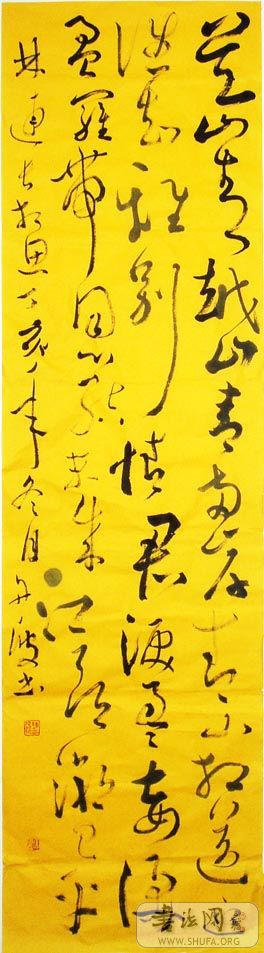 吴山青越山青两岸青山相送迎
谁知離别情君淚盈妾淚
盈羅帶同心结未成江头潮已平
林逋长相思丁亥年冬月波书
书法网
WWW.SHUFA.ORG